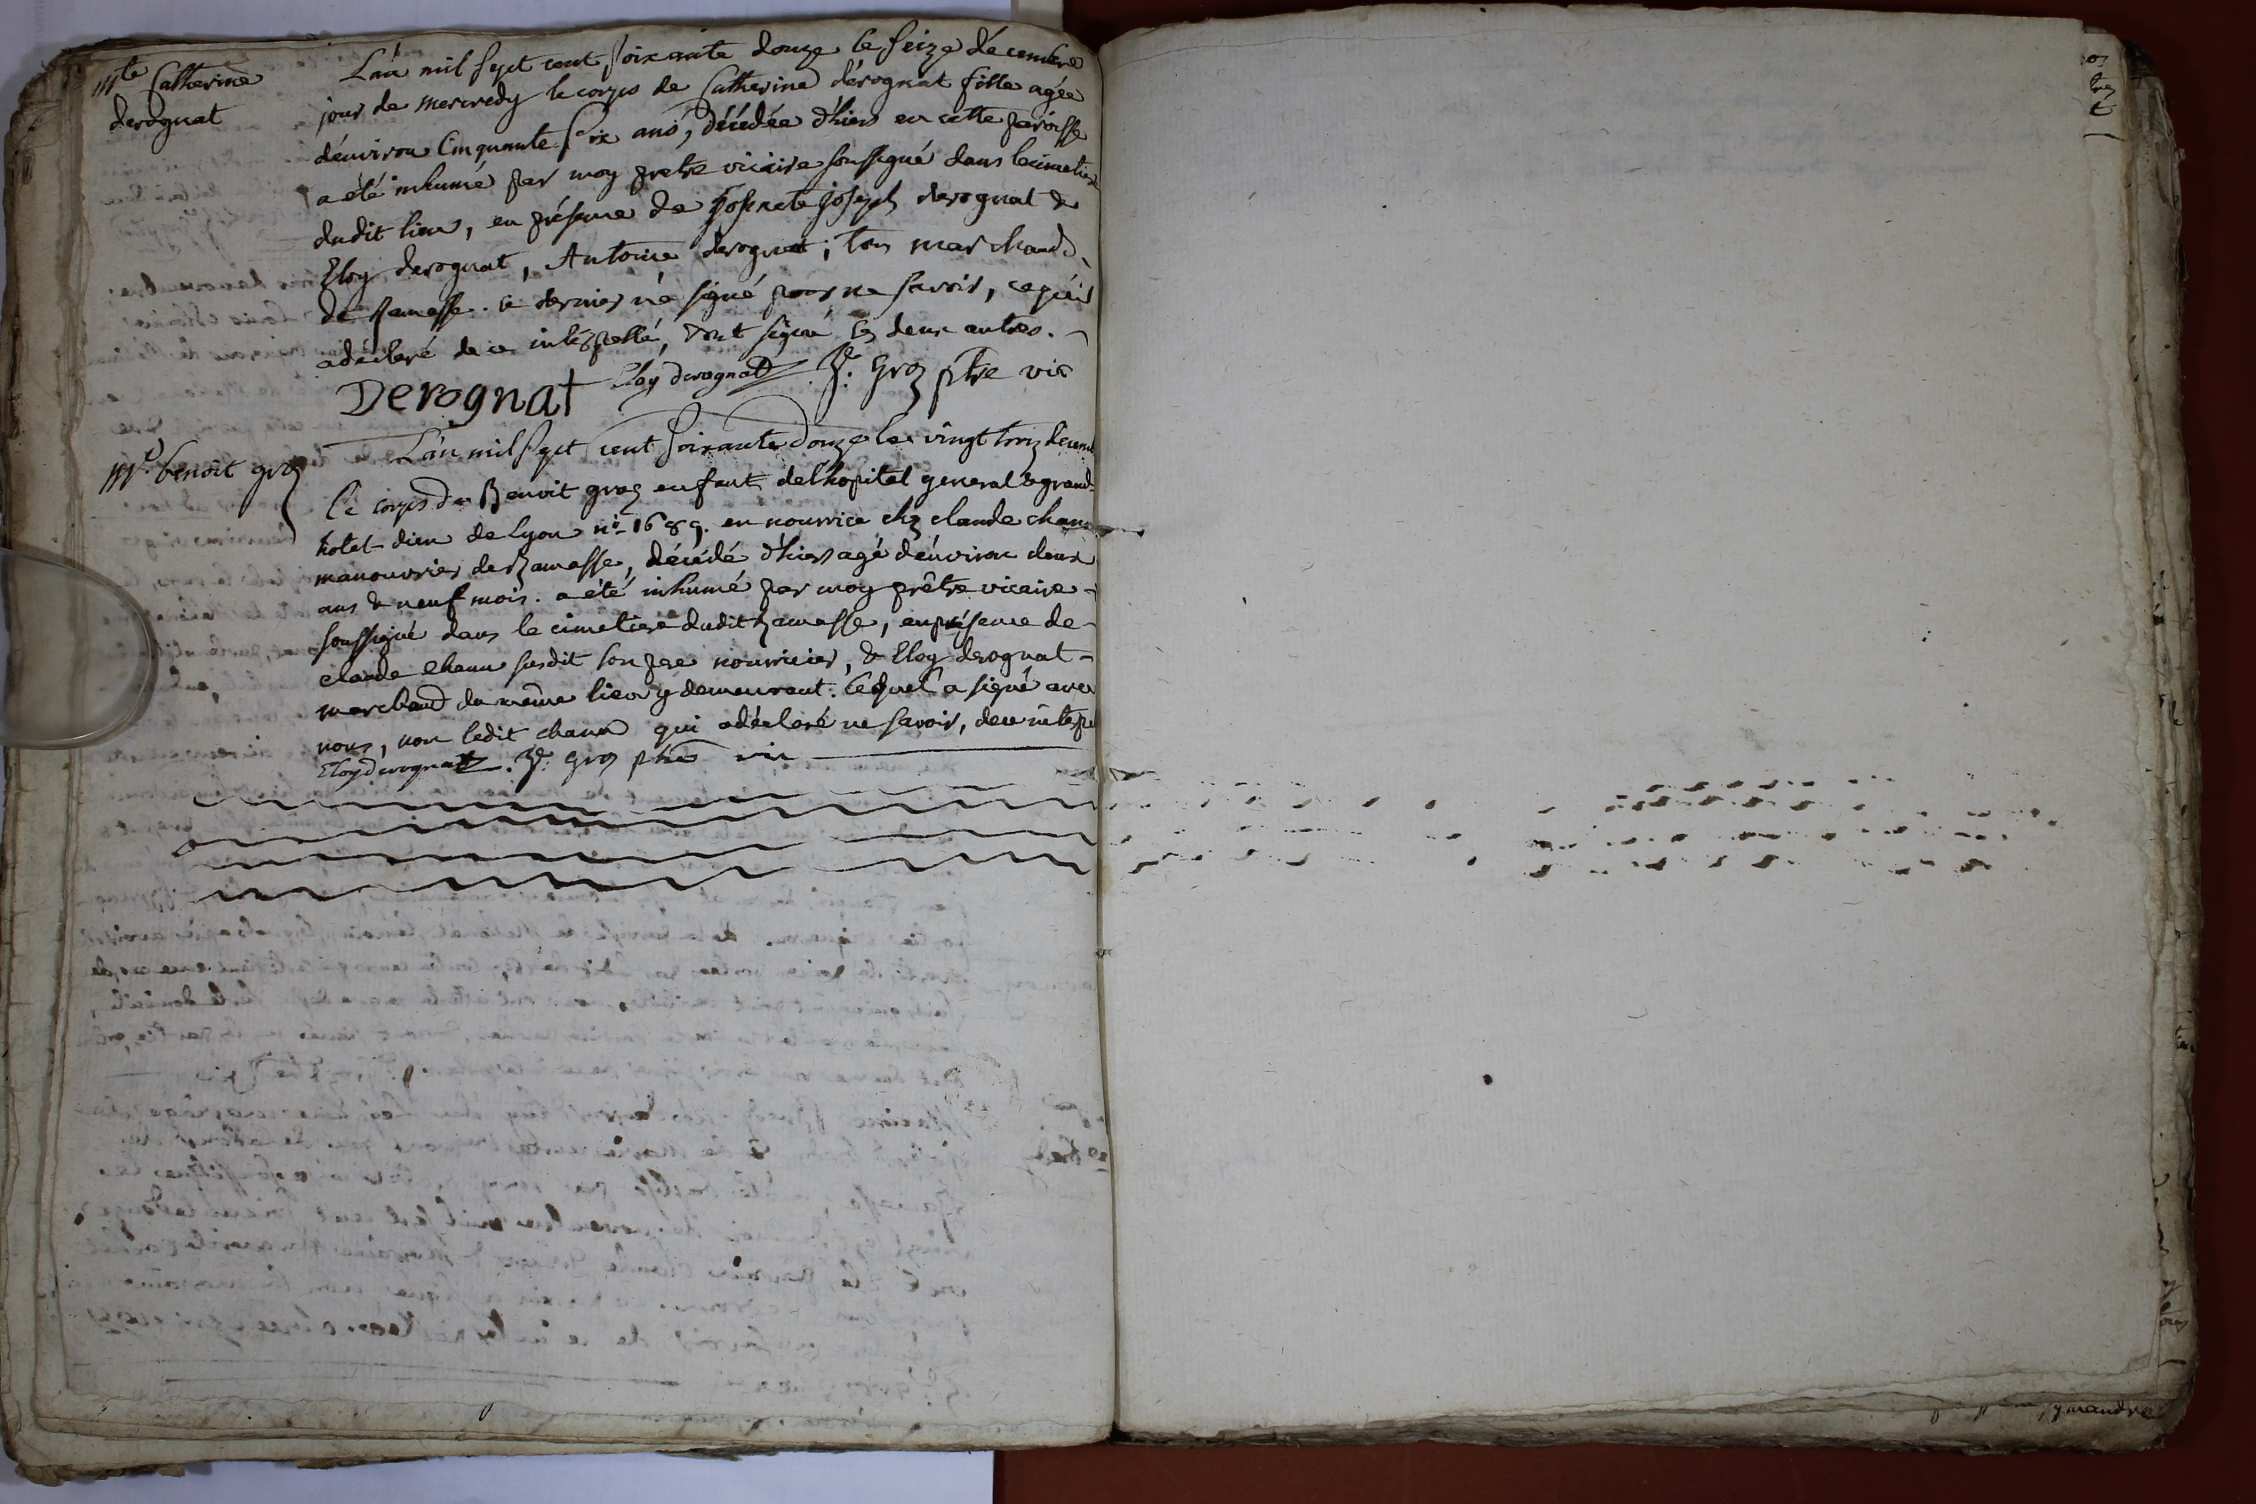 mte Catherine
derognat
L'an mil sept cent soixante douze le seize décembre
jour de mercredy le corps de Catherine dérognat fille agée
d'environ Cinquante six ans, décédée d'hier en cette paroisse
a été inhumé par moy pretre vicaire soussigné dans lecimetiere
dudit lieu, en présence de joseph derognat &
Eloy derognat, Antoine derognat, tous marchand
de Ramasse. ce dernier n'a signé pour ne savoir, ce qu'il
a déclaré de ce interpellé, ont signé les deux autres.
Derognat Eloy derognat. gros ptre vic
mt benoit gros
L'an mil sept cent soixante douze le vingt trois décemb
le corps de Benoit gros enfant de l'hopital general & grand
hotel dieu de Lyon n° 1689. en nourrice chez claude chanu
manouvrier de Ramasse, décédé d'hier agé d'environ deux
ans & neuf mois. a été inhumé par moy prêtre vicaire
soussigné dans le cimetiere dudit Ramasse, en présence de
claude chanu susdit son pere nourricier, & Eloy derognat
marchand du même lieu y demeurant. lequel a signé avec
nous, non ledit chanu qui a déclaré ne savoir, de ce interpe
Eloy derognat. gros ptre vic